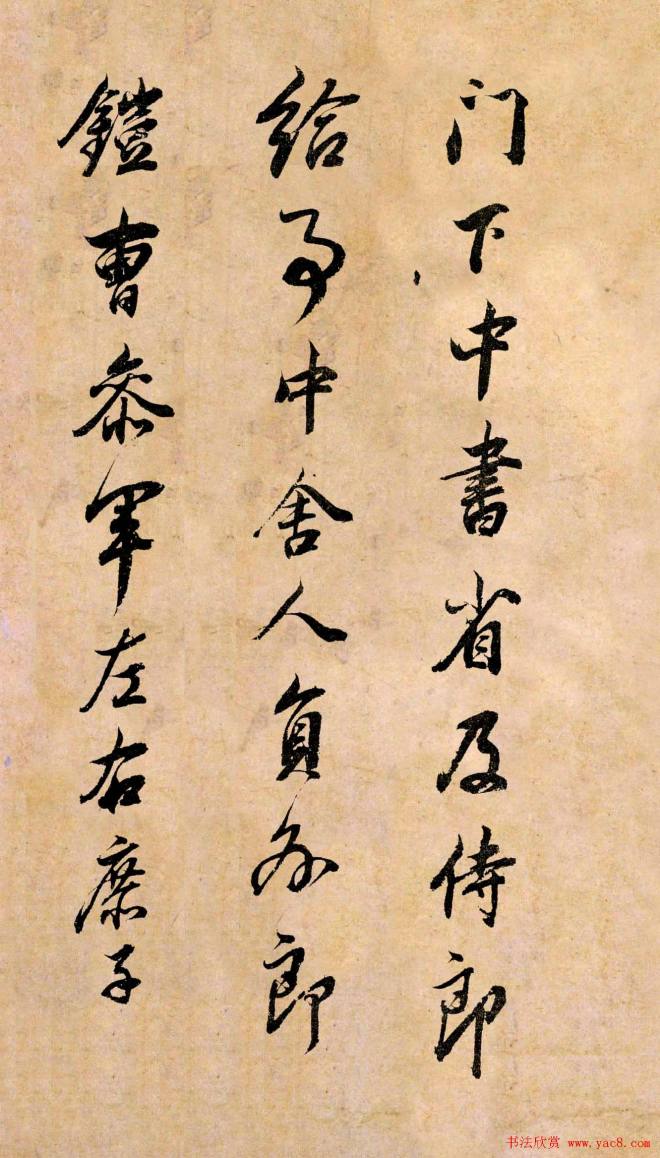 门下中書省及侍郎
給事中舍人員外郎
鎧曹叅軍左右庶子
书法欣赏 www.yac8.com